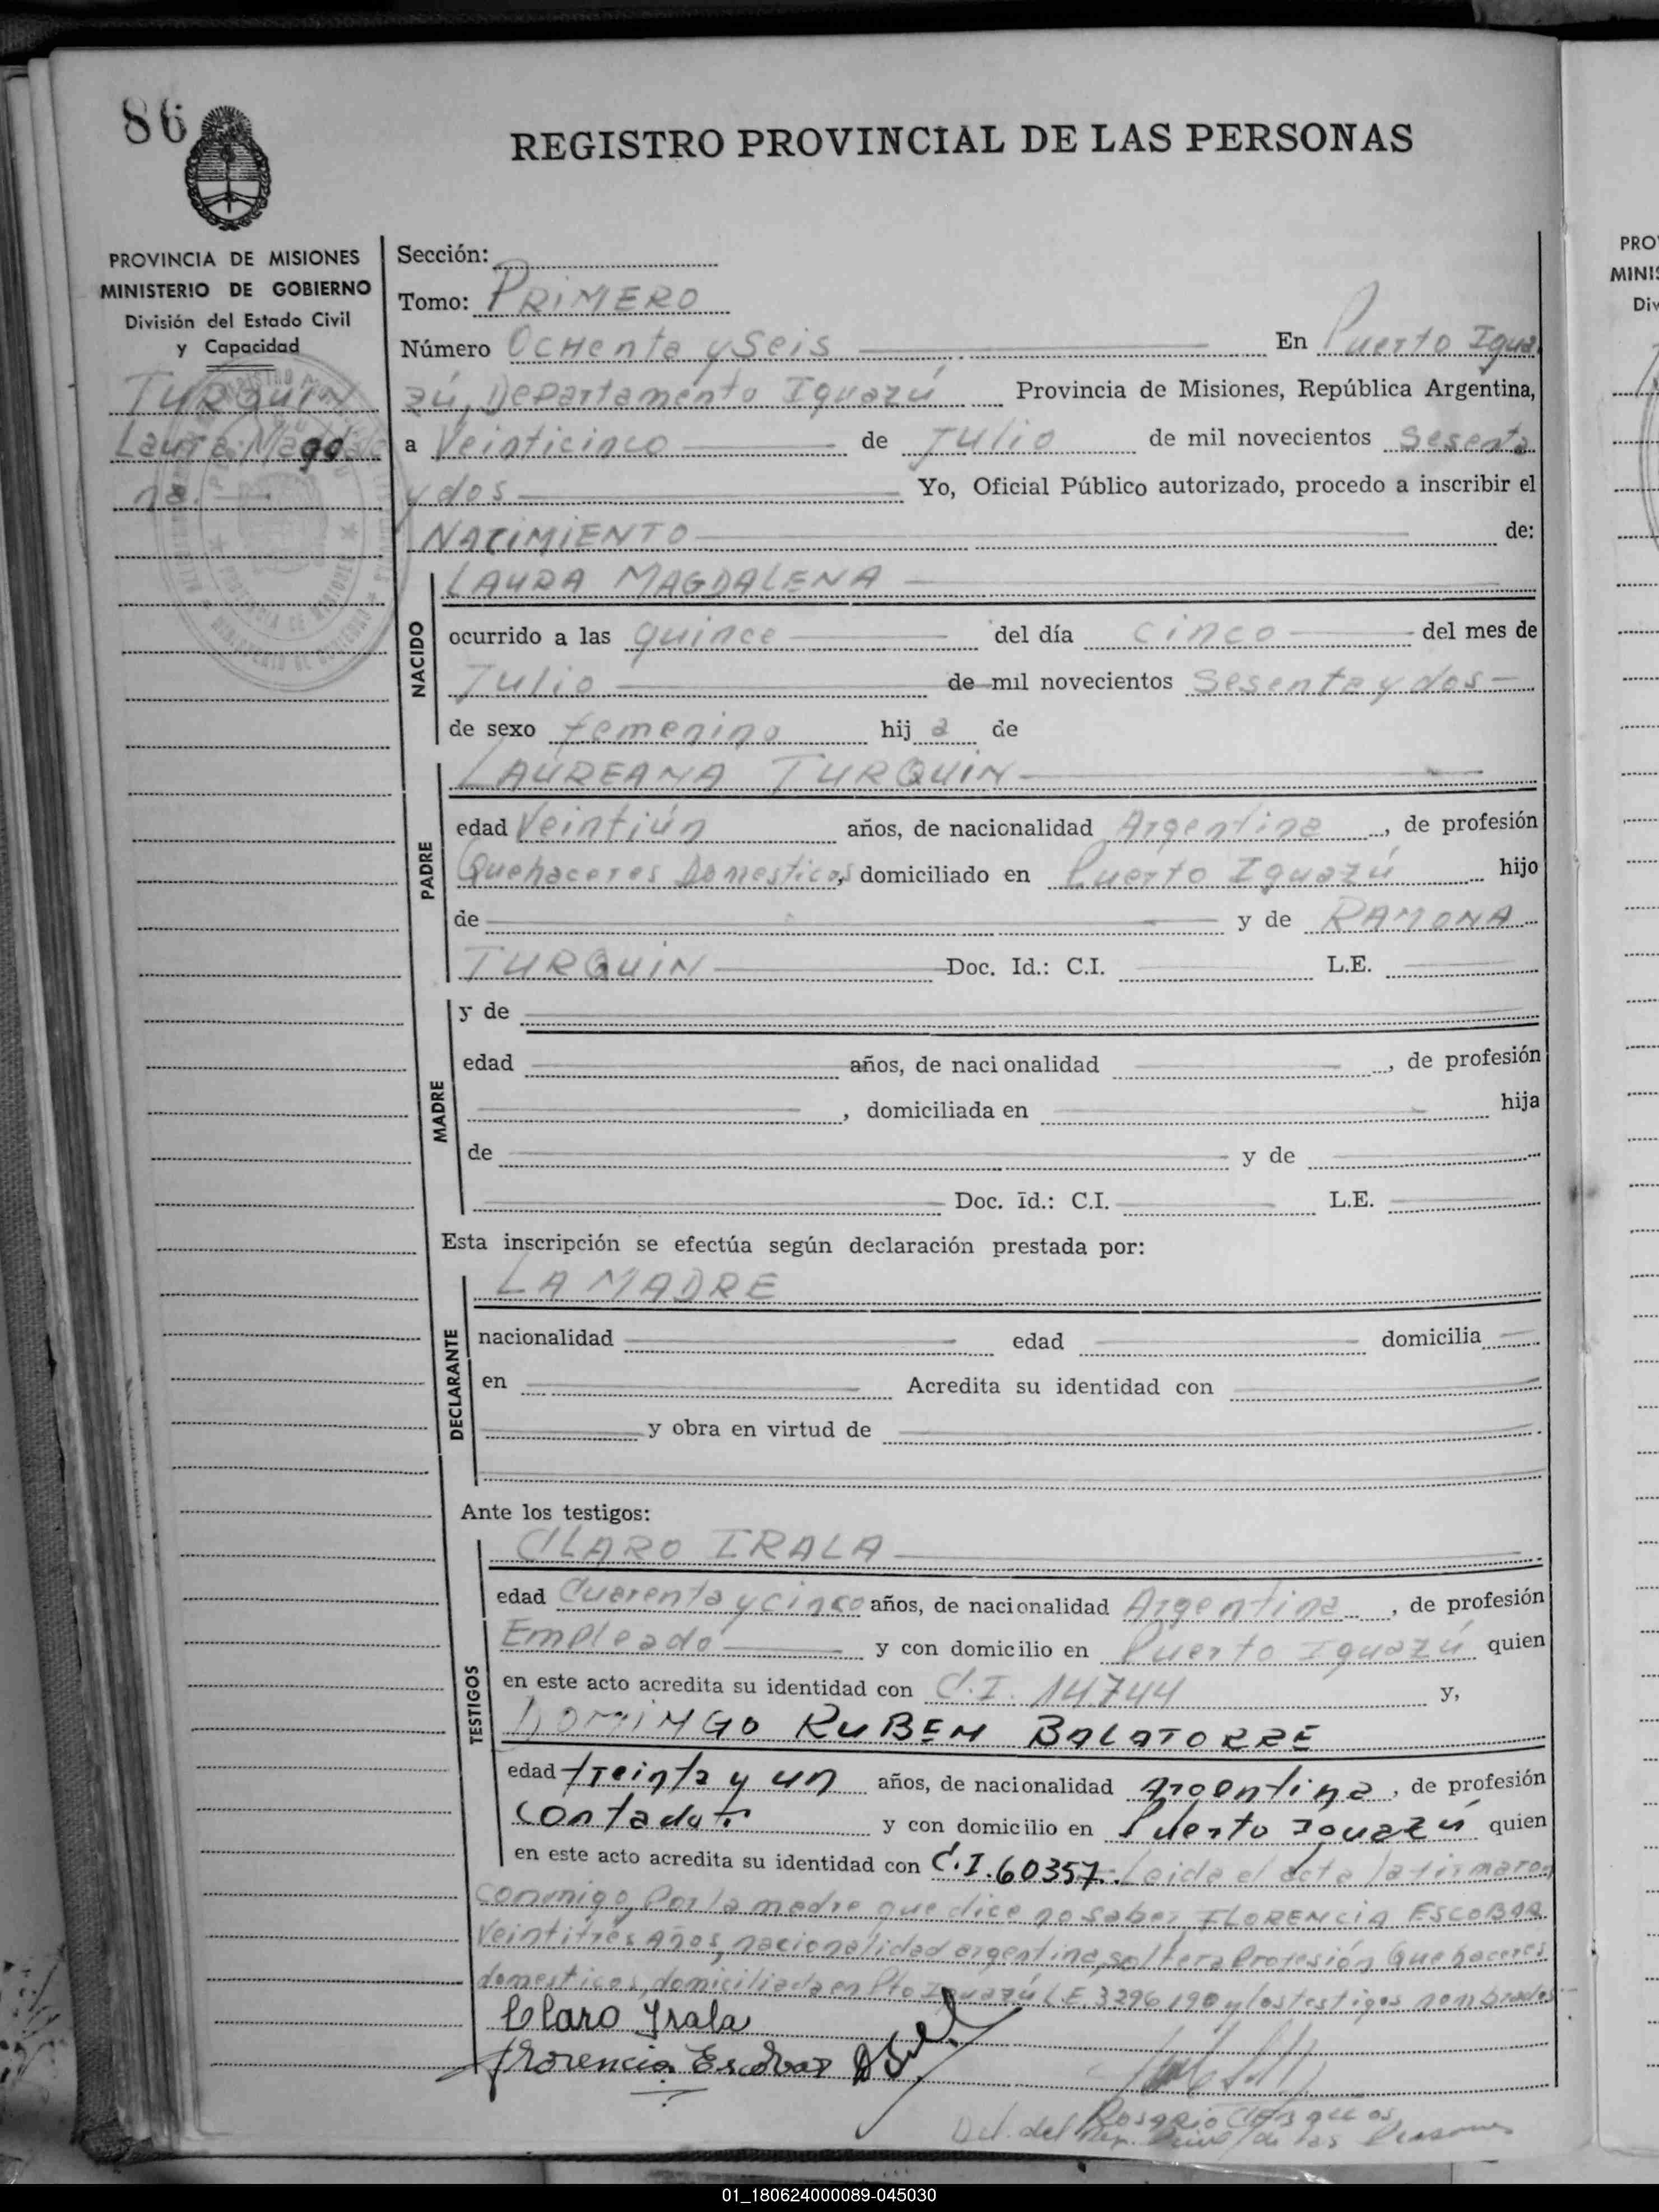 86
REGISTRO PROVINCIAL DE LAS PERSONAS
PROVINCIA DE MISIONES
MINISTERIO DE GOBIERNO
División del Estado Civil
y Capacidad
TURQUIN
Laura Magdale
na.
Sección:
Tomo: PRIMERO
Número Ochenta y Seis En Puerto Igua
zú, Departamento Iguazú Provincia de Misiones, República Argentina,
a Veinticinco de Julio de mil novecientos Sesenta
y dos Yo, Oficial Público autorizado, procedo a inscribir el
NACIMIENTO de:
NACIDO
LAURA MAGDALENA
ocurrido a las quince del día cinco del mes de
Julio de mil novecientos Sesenta y dos
de sexo femenino hij a de
PADRE
LAUREANA TURQUIN
edad Veintiún años, de nacionalidad Argentina, de profesión
Quehaceres Domesticos, domiciliado en Puerto Iguazú hijo
de y de RAMONA
TURQUIN Doc. Id.: C.I. L.E.
MADRE
y de
edad años, de naci onalidad , de profesión
, domiciliada en hija
de y de
Doc. Id.: C.I. L.E.
Esta inscripción se efectúa según declaración prestada por:
DECLARANTE
LA MADRE
nacionalidad edad domicilia
en Acredita su identidad con
y obra en virtud de
Ante los testigos:
TESTIGOS
CLARO IRALA
edad Cuarenta y cinco años, de nacionalidad Argentina, de profesión
Empleado y con domicilio en Puerto Iguazú quien
en este acto acredita su identidad con C.I. 14744 y,
DOMINGO RUBEN BALATORRE
edad treinta y un años, de nacionalidad Argentina, de profesión
contador y con domicilio en Puerto Iguazú quien
en este acto acredita su identidad con C.I. 60357. Leida el acta la firmaron
conmigo, Por la madre que dice no saber FLORENCIA ESCOBAR
Veintitrés Años, nacionalidad argentina, soltera Profesión Quehaceres
domesticos, domiciliada en Pto Iguazú L.E. 3296190 y los testigos nombrados
Claro Irala
Florencia Escobar
Rosario
Del. del Reg. Prov. de las Personas
PRO
MINIS
Div
01_180624000089-045030